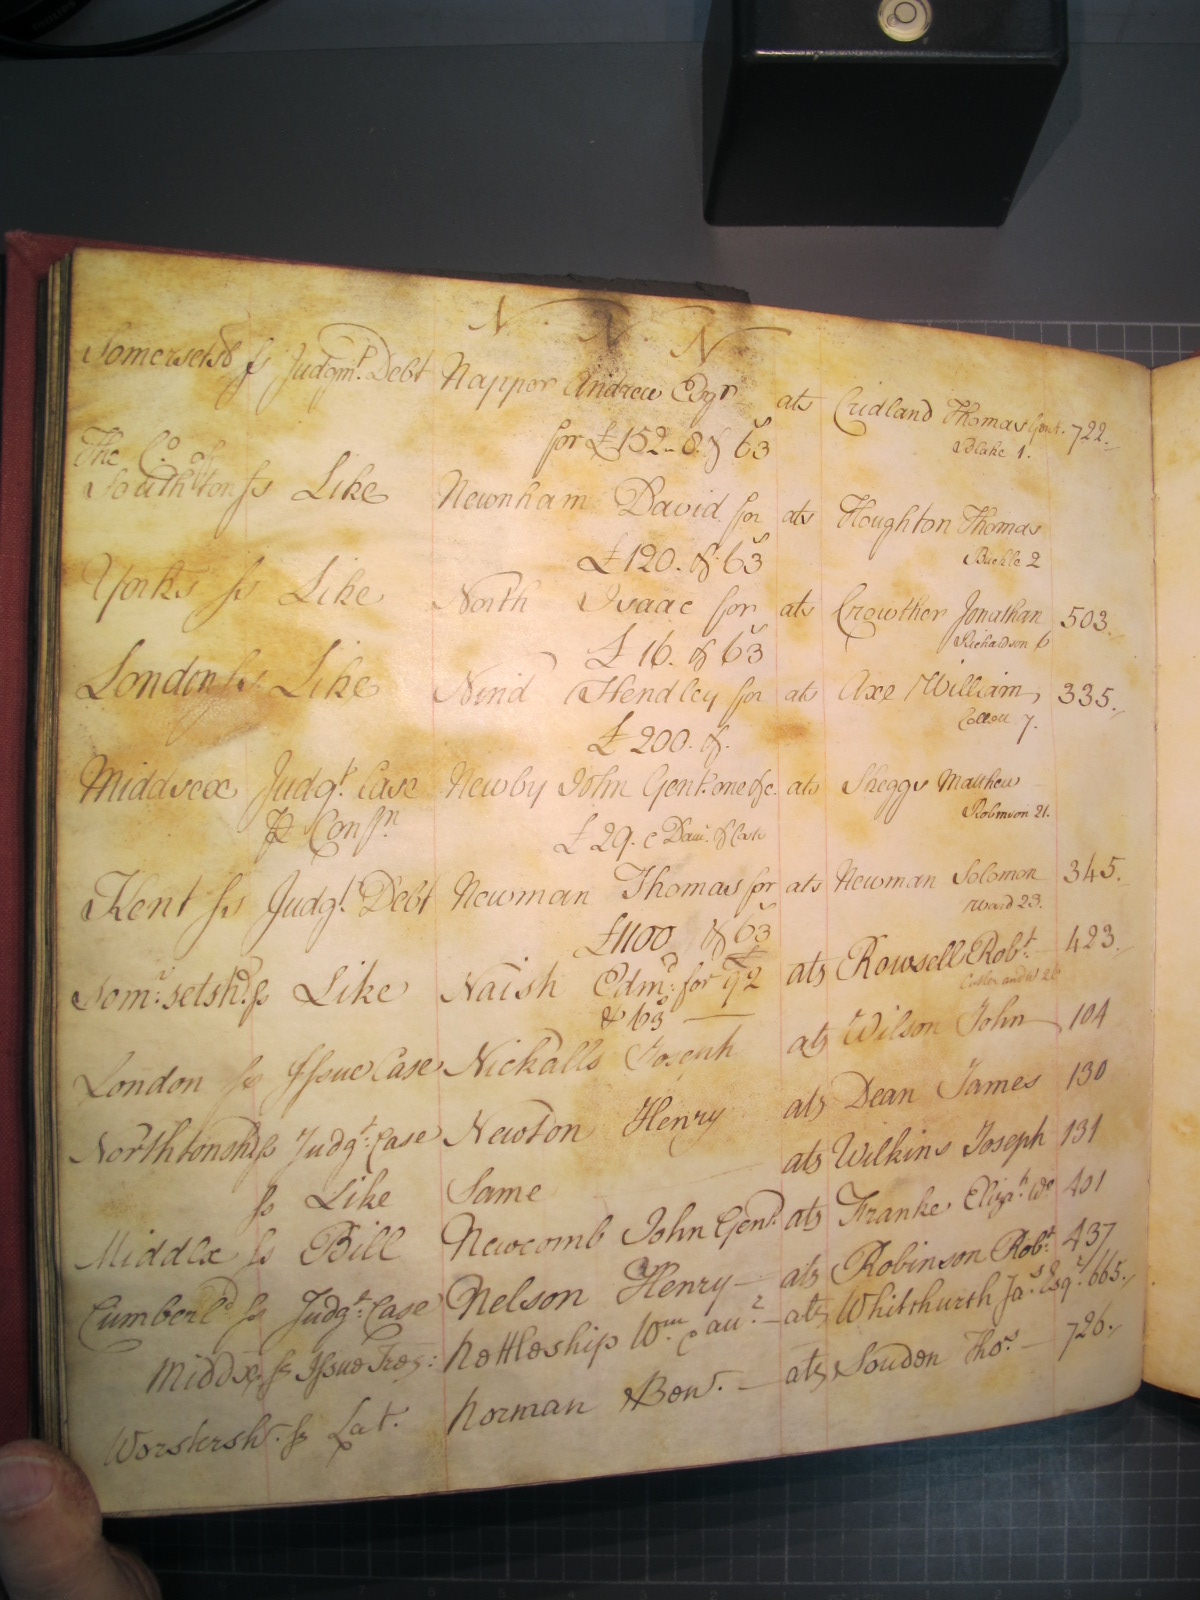 N N N
Somersets ss Judgmt. Debt Napper Andrew Esqr ats Cridland Thomas Gent. 722.
for £152..8. & 63s Blake 1.
The Co. of
Southton ss Like Newnham David for ats Houghton Thomas
£120. & 63s Buckle 2
Yorks ss Like North Isaac for ats Crowther Jonathan 503.
£16. & 63s Richardson 6
London ss Like Nind Hendley for ats Axe William 335.
£200. &. 7.
Middsex Judgt. Case Newby John Gent. one &c. ats Skeggs Matthew
£29. Robinson 21.
Kent ss Judgt. Debt Newman Thomas for ats Newman Solomon 345.
£1100 & 63s Ward 23.
Somr:setsh. ss Like Naish Edmd: for £92 ats Rowsell Robt. 423.
& 63s
London ss Issue Case Nickalls Joseph ats Wilson John 104
Northtonsh ss Judgt: Case Newton Henry ats Dean James 130
ss Like Same ats Wilkins Joseph 131
Middlx ss Bill Newcomb John Gent. ats Franke Elizah. Wo 401
Cumberld ss Judgt: Case Nelson Henry ats Robinson Robt. 437
Middx. ss Issue Tres: Nettleship Wm. ats Whitshurth Jas. Esqr. 665.
Worstersh. ss Lat. Norman Benj. ats Souden Thos. 726.